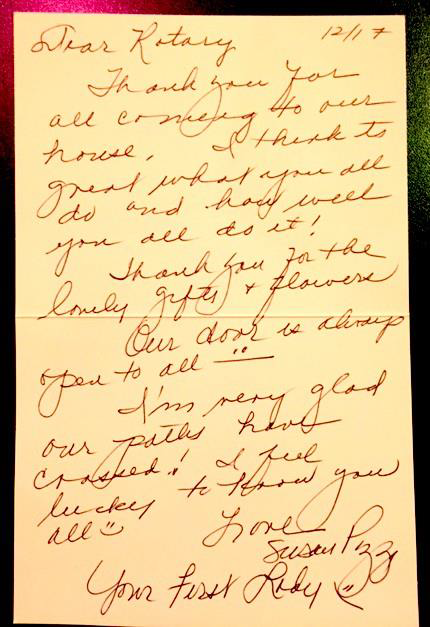 Dear Rotary 12/17
Thank you for
all coming to our
house. I think its
great what you all
do and how well
you all do it!
Thank you for the
lovely gifts + flowers
Our door is always
open to all
I'm very glad
our paths have
crossed! I feel
lucky to know you
all
Love
Susan
Your First Lady